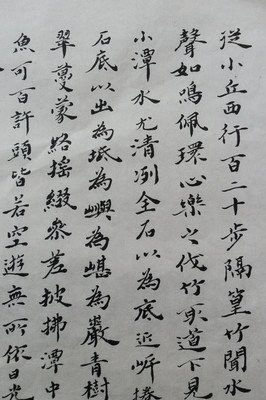 從小丘西行百二十步隔篁竹聞水
聲如鳴佩環心樂之伐竹取道下見
小潭水尤清冽全石以為底近岸捲
石底以出為坻為嶼為嵁為巖青樹
翠蔓蒙絡搖綴參差披拂潭中
魚可百許頭皆若空遊無所依日光